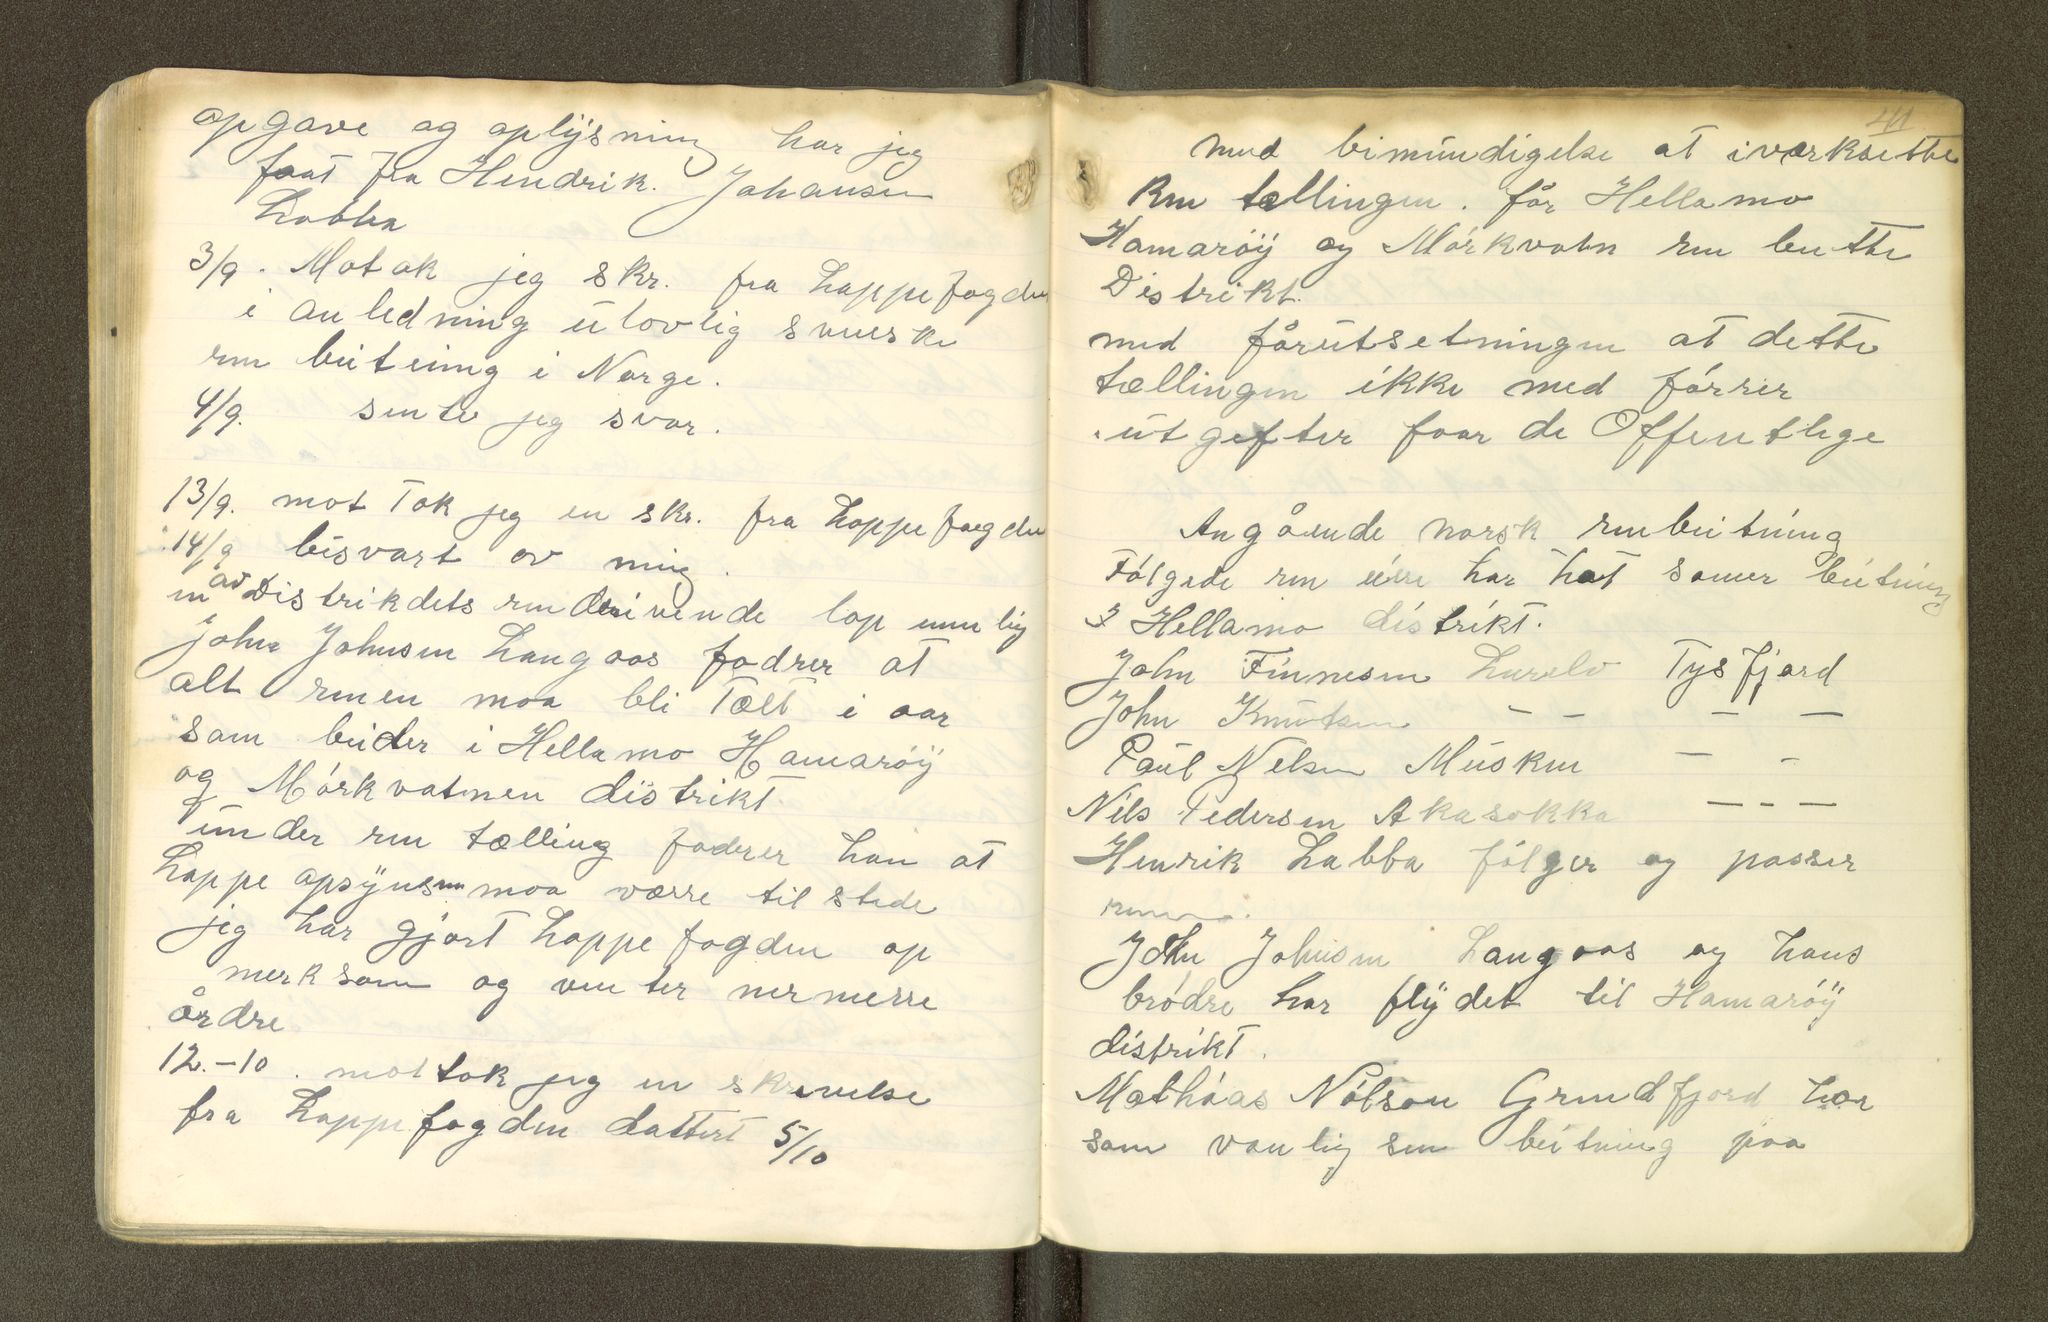 opgave og oplysning har jeg
faat fra Hendrik. Johansen
Labba
3/9. Motok jeg skr. fra Lappefogden
i anledning ulovlig svenske
ren beiteing i Norge.
4/9. sente jeg svar.
13/9. mot tok jeg en skr. fra Lappefogden
14/9 besvart av mig.
en av Distrikdets rendrivende lap nemlig
John Johnsen Langaas fodrer at
alt renen maa bli Tælt i aar
som beider i Hellamo Hamarøy
og Mörkvatnen distrikt.
under ren tælling fodrer han at
Lappe opsynsmn maa værre til stede
jeg har gjort Lappefogden op
merksom og venter nermerre
ordre
12.-10. mottok jeg en skrivelse
fra Lappefogden dattert 5/10
41
med bimyndigelse at iverksette
Ren tællingen. før Hellamo
Hamarøy og Mörkvatn ren beitte
Distrikt.
med förutsetningen at dette
tællingen ikke med förrer
utgefter foor de Offentlege
Angående norsk renbeitning
Fölgede ren eiere har hat somer beitning
I Hellamo distrikt.
John Finnesen Lurelv Tysfjord
John Knutsen - - - -
Paul Nelsen Musken - -
Nils Pedersen Akasokka - - -
Henrik Labba fölger og passer
renen.
John Johnsen Langaas og hans
brödre har flydet til Hamarøy
distrikt.
Mathias Nilsson Grundfjord har
som vanlig sen beitning paa